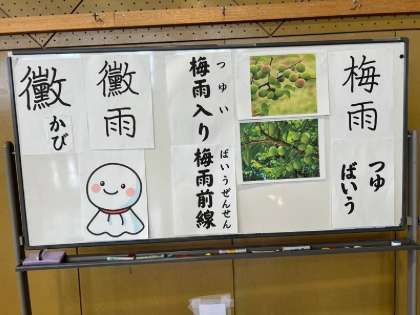 梅雨
つゆ
ばいう
つゆい
梅雨入り
ばいうぜんせん
梅雨前線
黴雨
黴
かび